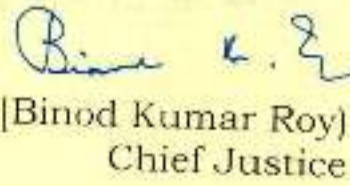 [Binod Kumar Roy)
Chief Justice